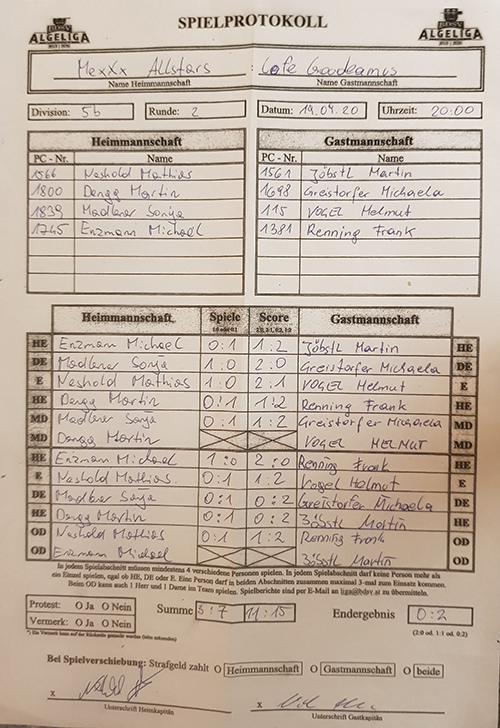 SPIELPROTOKOLL
BDSV ALGELIGA BDSV ALGELIGA
MexXx Allstars : Cafe Gaudeamus
Name Heimmannschaft Name Gastmannschaft
Division: 5b Runde: 2 Datum: 19.09.20 Uhrzeit: 20:00
Heimmannschaft Gastmannschaft
PC - Nr. Name PC - Nr. Name
1566 Neshold Mathias 1561 Jöbstl Martin
1800 Dengg Martin 1698 Greistorfer Michaela
1839 Madlener Sonja 115 VOGEL Helmut
1745 Enzmann Michael 1381 Renning Frank
Heimmannschaft Spiele Score Gastmannschaft
HE Enzmann Michael 0:1 1:2 Jöbstl Martin HE
DE Madlener Sonja 1:0 2:0 Greistorfer Michaela DE
E Neshold Mathias 1:0 2:1 VOGEL Helmut E
HE Dengg Martin 0:1 1:2 Renning Frank HE
MD Madlener Sonja 0:1 1:2 Greistorfer Michaela MD
MD Dengg Martin VOGEL HELMUT MD
HE Enzmann Michael 1:0 2:0 Renning Frank HE
E Neshold Mathias. 0:1 1:2 Vogel Helmut E
DE Madlener Sonja 0:1 0:2 Greistorfer Michaela DE
HE Dengg Martin 0:1 0:2 Jöbstl Martin HE
OD Neshold Mathias 0:1 1:2 Renning Frank OD
OD Enzmann Michael Jöbstl Martin OD
In jedem Spielabschnitt müssen mindestens 4 verschiedene Personen spielen. In jedem Spielabschnitt darf keine Person mehr als
ein Einzel spielen, egal ob HE, DE oder E. Eine Person darf in beiden Abschnitten zusammen maximal 3-mal zum Einsatz kommen.
Beim OD kann auch 1 Herr und 1 Dame im Team spielen. Spielberichte sind per E-Mail an liga@bdsv.at zu übermitteln.
Protest: O Ja O Nein Summe 3:7 11:15 Endergebnis 0:2
Vermerk: O Ja O Nein (2:0 od. 1:1 od. 0:2)
*) Ein Vermerk kann auf der Rückseite gemacht werden (bitte ankreuzen)
Bei Spielverschiebung: Strafgeld zahlt O Heimmannschaft O Gastmannschaft O beide
x x
Unterschrift Heimkapitän Unterschrift Gastkapitän